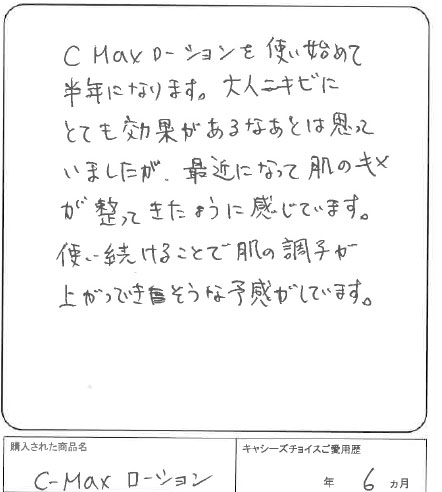 C Maxローションを使い始めて
半年になります。大人ニキビに
とても効果があるなあとは思って
いましたが、最近になって肌のキメ
が整ってきたように感じています。
使い続けることで肌の調子が
上がってきそうな予感がしています。
購入された商品名
キャシーズチョイスご愛用歴
C-Max ローション
年 6 ヵ月